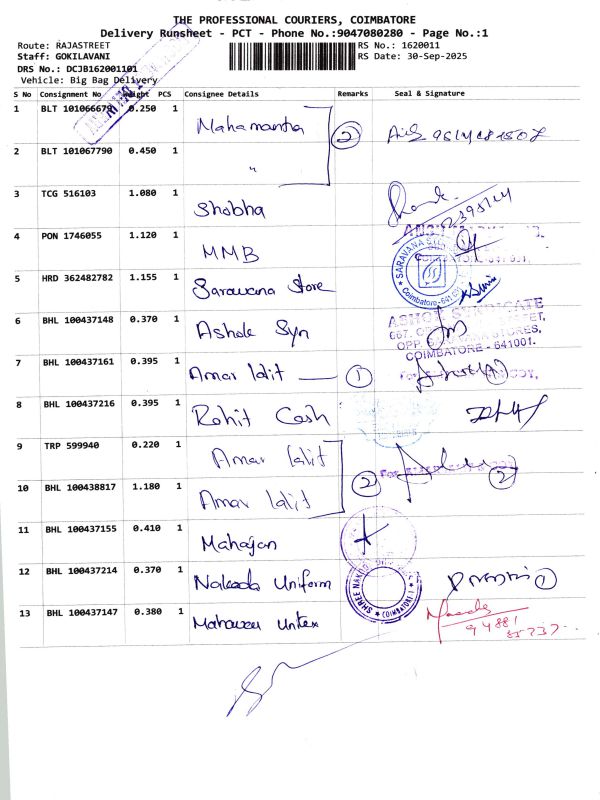 THE PROFESSIONAL COURIERS, COIMBATORE
Delivery Runsheet - PCT - Phone No.:9047080280 - Page No.:1
Route: RAJASTREET
RS No.: 1620011
Staff: GOKILAVANI
RS Date: 30-Sep-2025
DRS No.: DCJB162001101
Vehicle: Big Bag Delivery
S No Consignment No Weight PCS Consignee Details Remarks Seal & Signature
1 BLT 101066679 0.250 1 Mahamantha 2
2 BLT 101067790 0.450 1 "
3 TCG 516103 1.080 1 Shobha
4 PON 1746055 1.120 1 MMB
SARAVANA
Coimbatore-641
5 HRD 362482782 1.155 1 Sarawana Store
6 BHL 100437148 0.370 1 Ashok Syn
ASHOK SYNDICATE
667, OP
OPP. STORES,
COIMBATORE - 641001.
7 BHL 100437161 0.395 1 Amar lalit 1
8 BHL 100437216 0.395 1 Rohit Cash
9 TRP 599940 0.220 1 Amar lalit 2 2
10 BHL 100438817 1.180 1 Amar lalit
11 BHL 100437155 0.410 1 Mahajan
12 BHL 100437214 0.370 1 Nakoda Uniform 1
SHREE NAKODA
COIMBATORE-1
13 BHL 100437147 0.380 1 Mahaveer Untex
94881